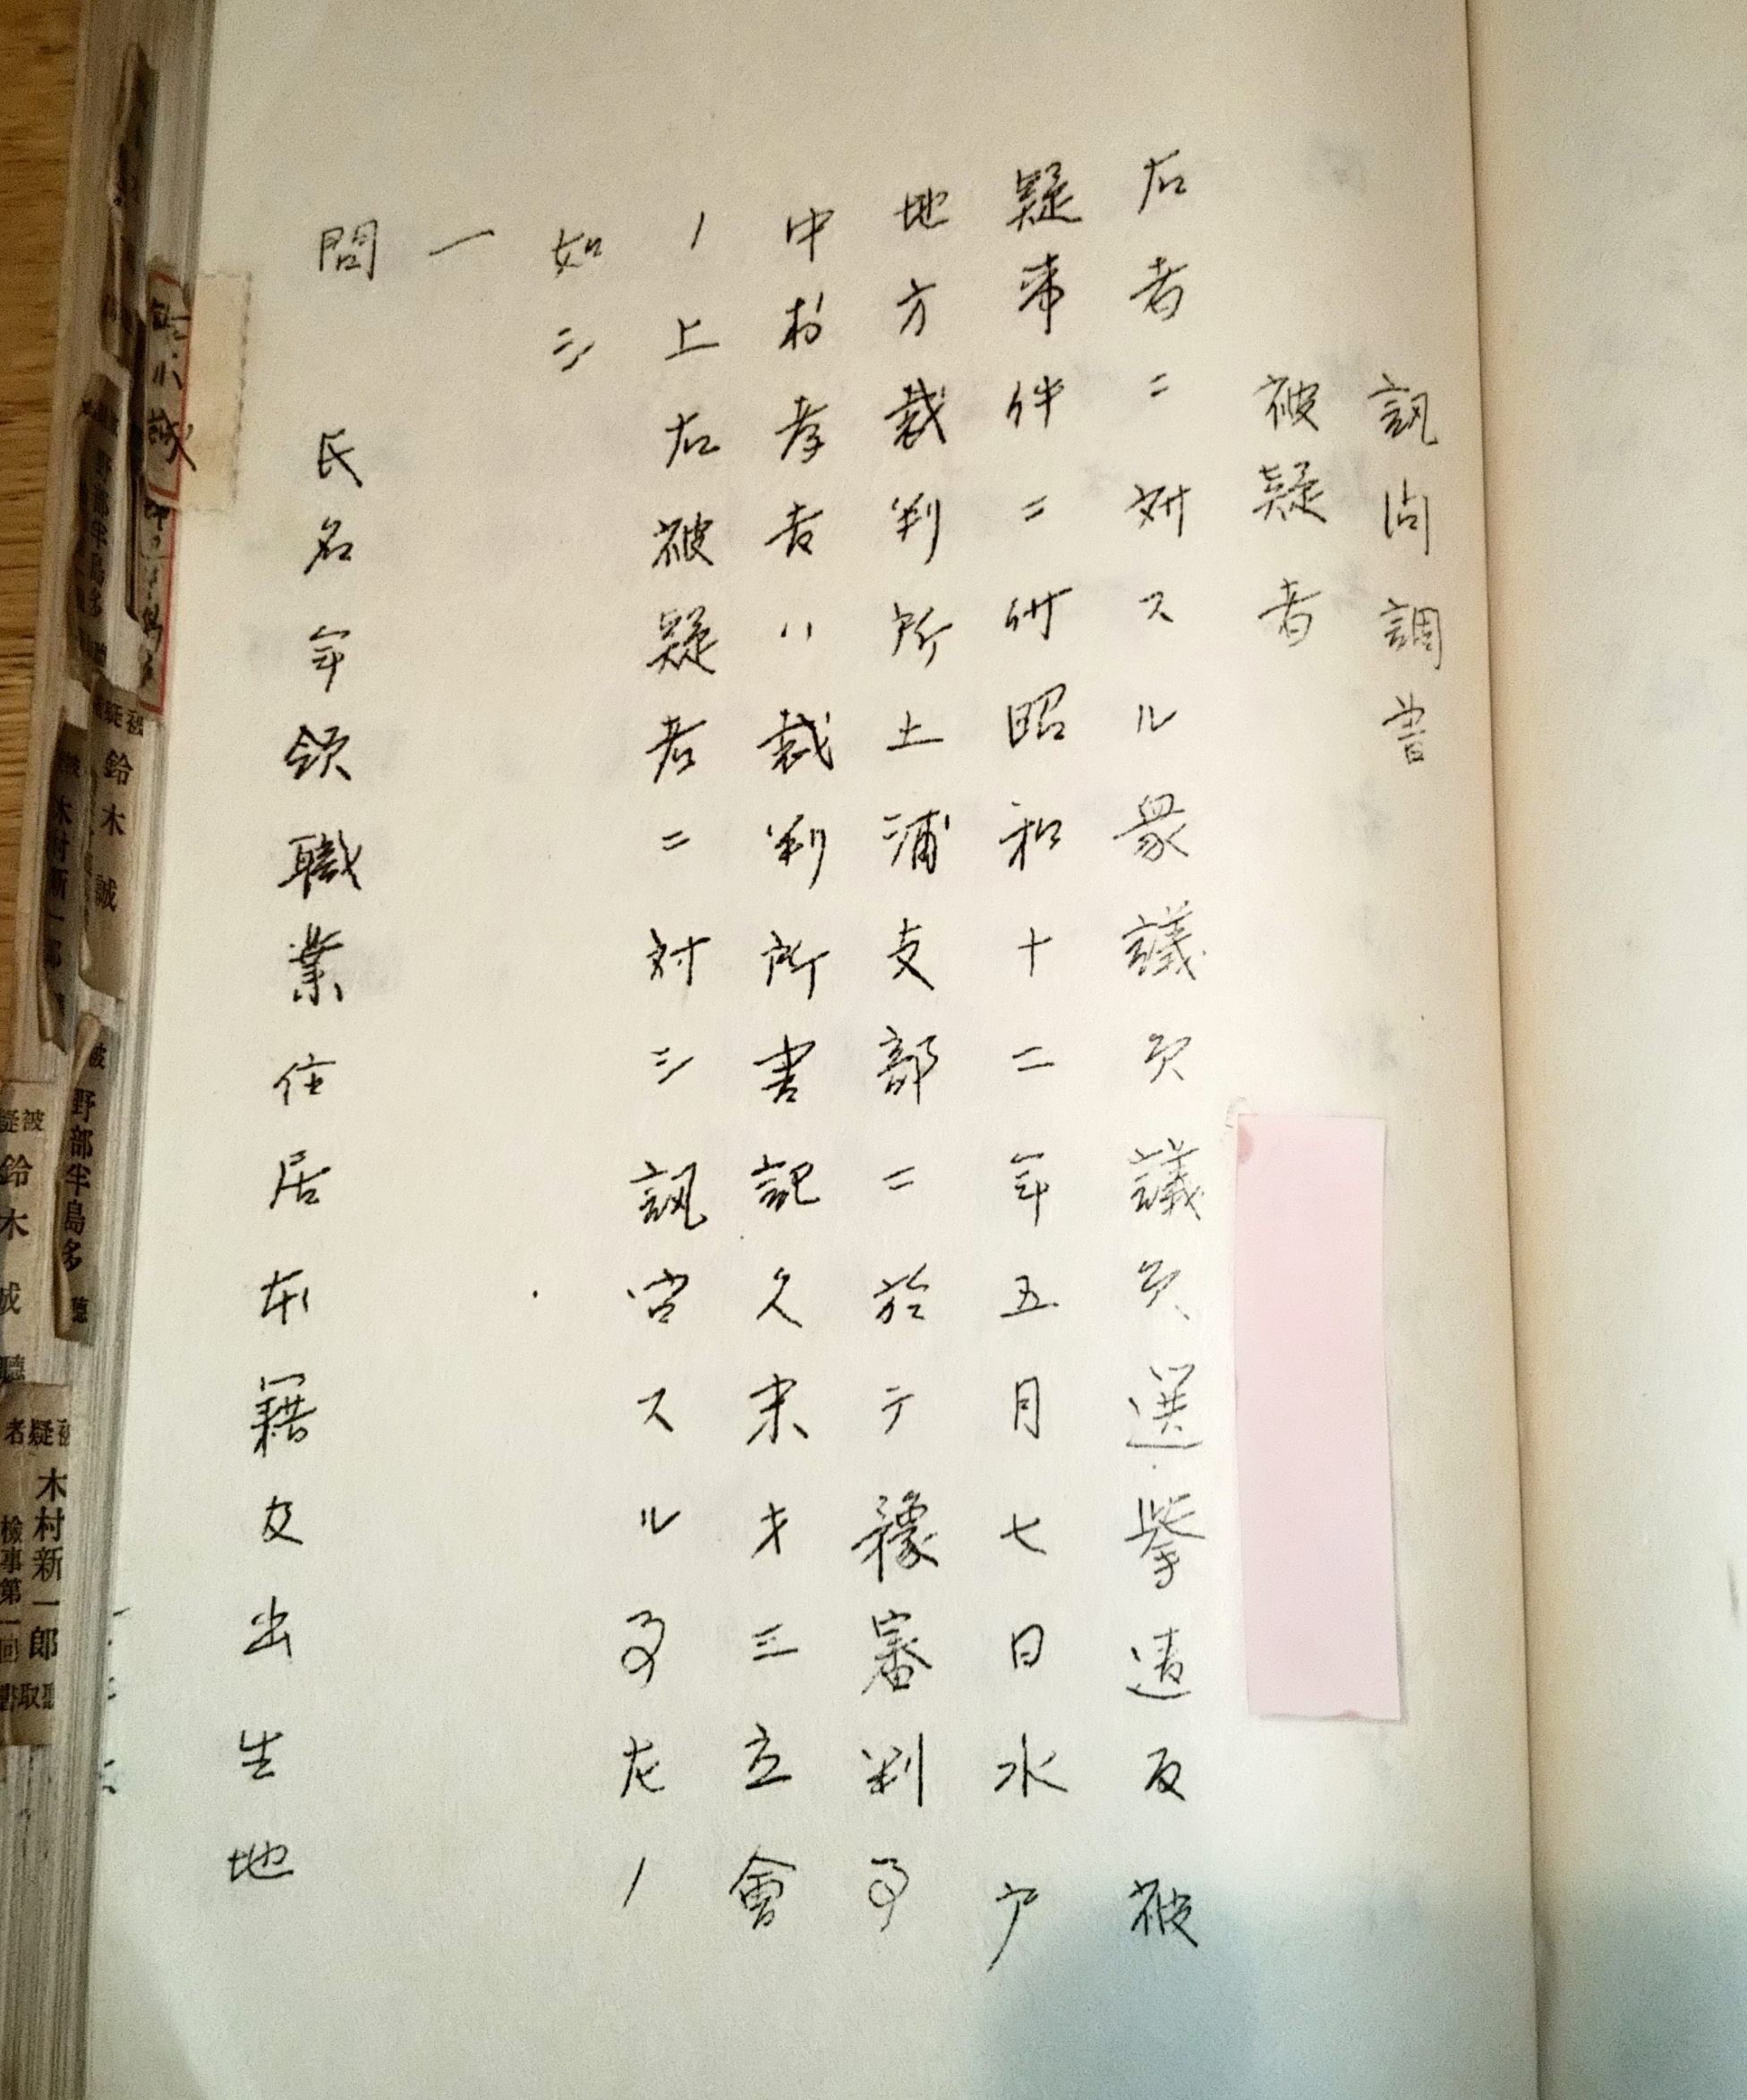 訊問調書
被疑者
右者ニ対スル衆議員議員選挙違反被
疑事件ニ付昭和十二年五月七日水戸
地方裁判所土浦支部ニ於テ豫審判事
中村孝吉ハ裁判所書記久末才三立會
ノ上右被疑者ニ対シ訊問スル事左ノ
如シ
一
問 氏名年令職業住居本籍及出生地
鈴木 誠
野部半島多 聴
鈴木
木村新一郎
檢事第一回